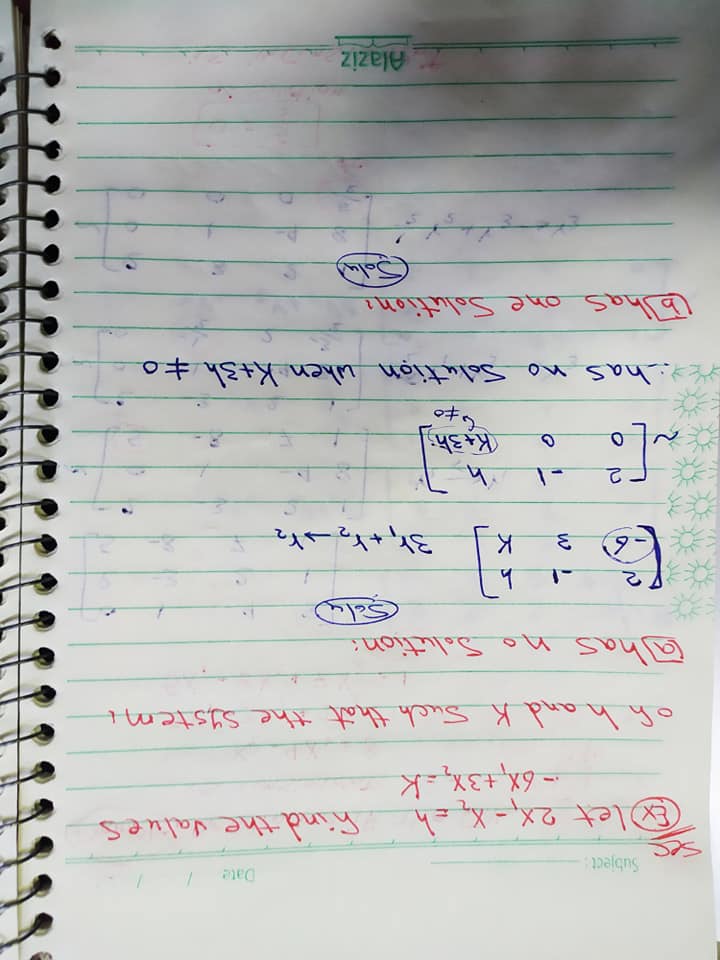 Subject :
Date / /
Sec
Ex let 2x₁ - x₂ = h find the values
- 6x₁ + 3x₂ = K
of h and K such that the system:
a has no solution:
Solu
[ 2 -1 h
-6 3 K ] 3r₁ + r₂ → r₂
~ [ 2 -1 h
0 0 K+3h ]
↳ ≠0
∴ has no solution when K+3h ≠ 0
b has one solution:
Solu
Alaziz